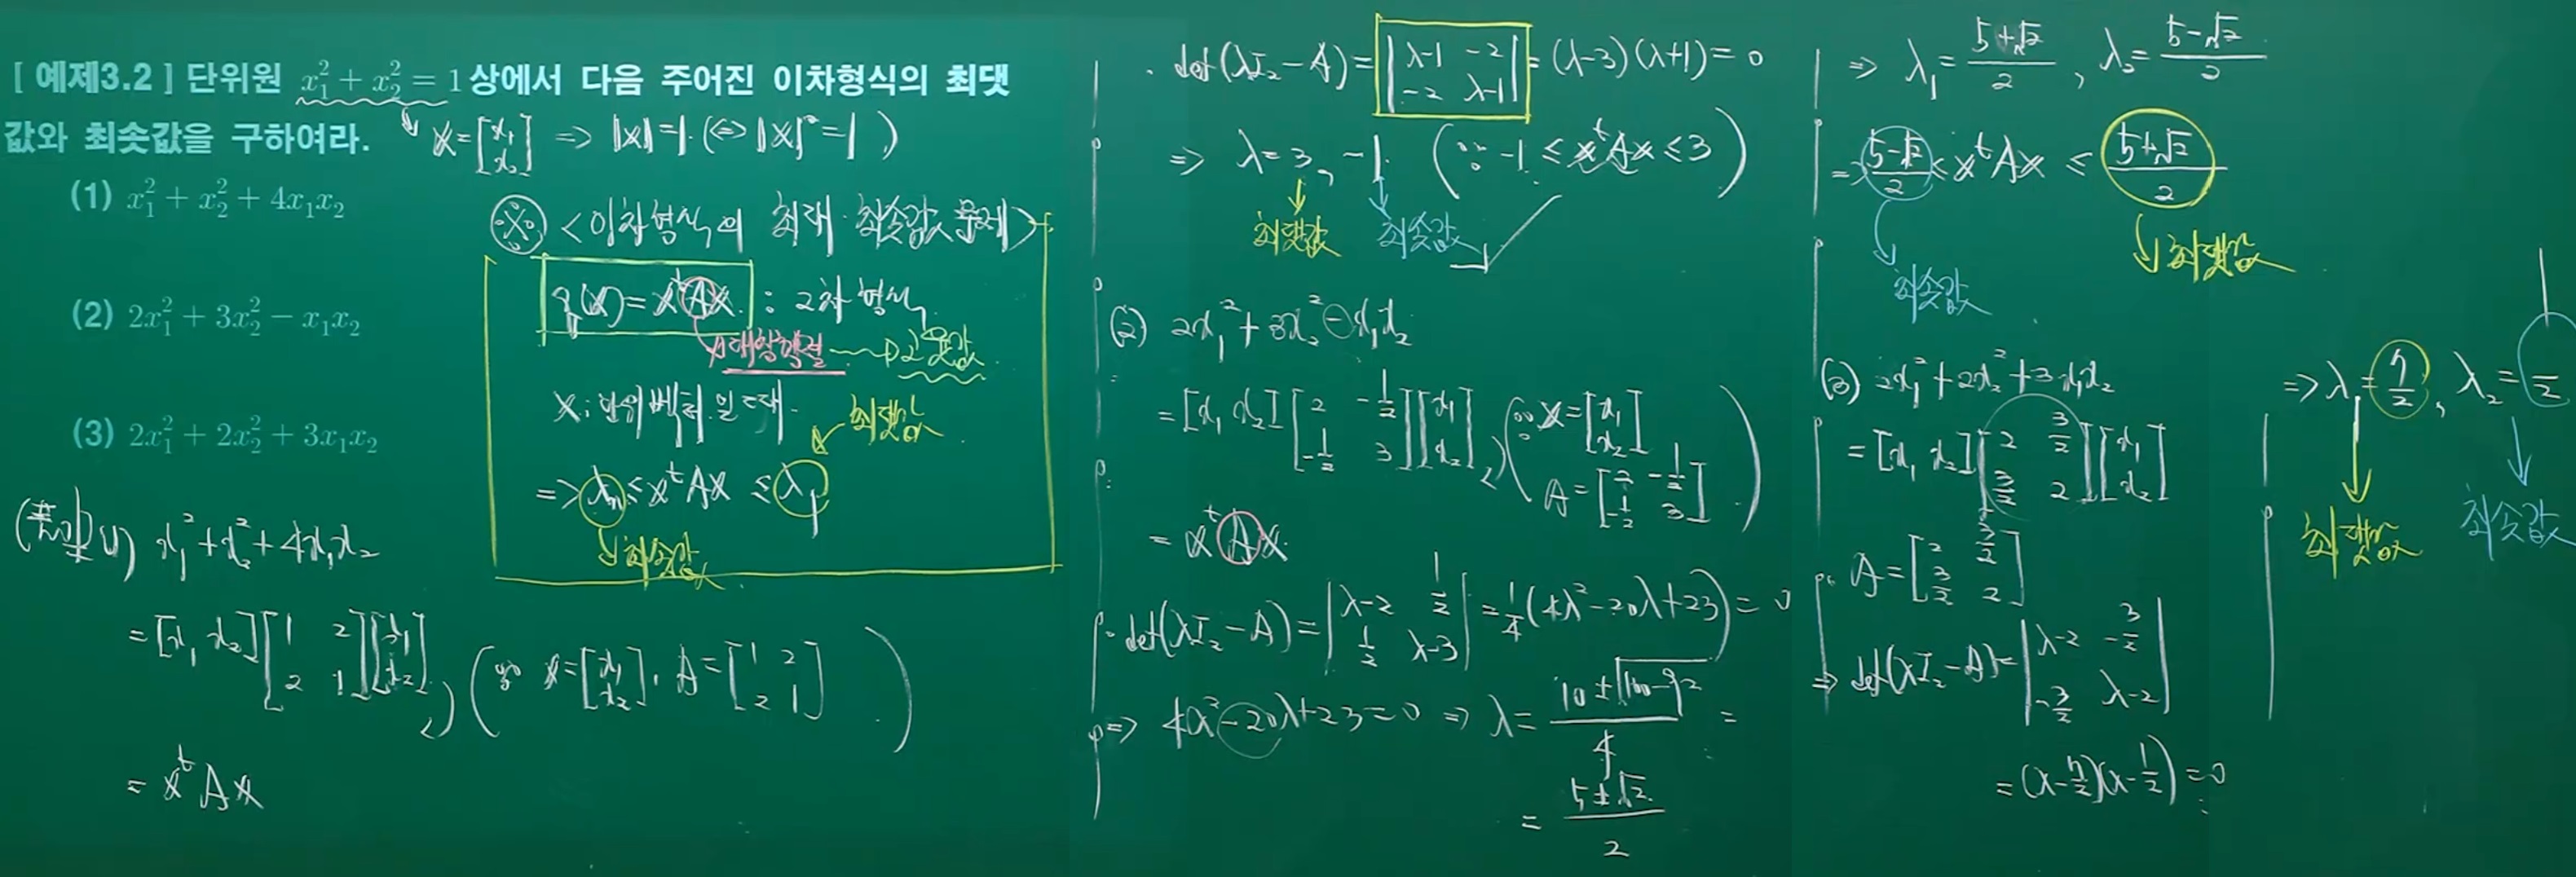 [ 예제3.2 ] 단위원 x₁² + x₂² = 1 상에서 다음 주어진 이차형식의 최댓
값와 최솟값을 구하여라.
x = [x₁ x₂] => |x| = 1. (<=> |x|² = 1 )
(1) x₁² + x₂² + 4x₁x₂
(2) 2x₁² + 3x₂² − x₁x₂
(3) 2x₁² + 2x₂² + 3x₁x₂
※ <이차형식의 최대·최솟값 문제>
q(x) = xᵗAx : 2차형식
대칭행렬 → 고윳값
x : 단위벡터일 때.
최댓값
=> λₙ ≤ xᵗAx ≤ λ₁
최솟값
(풀이) (1) x₁² + x₂² + 4x₁x₂
= [x₁ x₂] [1 2; 2 1] [x₁; x₂], (∵ x = [x₁; x₂], A = [1 2; 2 1])
= xᵗAx
· det(λI₂ − A) = |λ−1 −2; −2 λ−1| = (λ−3)(λ+1) = 0
=> λ = 3, −1. (∵ −1 ≤ xᵗAx ≤ 3)
최댓값 최솟값
(2) 2x₁² + 3x₂² − x₁x₂
= [x₁ x₂] [2 −1/2; −1/2 3] [x₁; x₂], (∵ x = [x₁; x₂]
A = [2 −1/2; −1/2 3])
= xᵗAx
· det(λI₂ − A) = |λ−2 1/2; 1/2 λ−3| = 1/4(4λ² − 20λ + 23) = 0
=> 4λ² − 20λ + 23 = 0 => λ = (10 ± √(100−92))/4 =
= (5 ± √2)/2
=> λ₁ = (5+√2)/2, λ₂ = (5−√2)/2
=> (5−√2)/2 ≤ xᵗAx ≤ (5+√2)/2
최솟값 최댓값
(3) 2x₁² + 2x₂² + 3x₁x₂
= [x₁ x₂] [2 3/2; 3/2 2] [x₁; x₂]
A = [2 3/2; 3/2 2]
=> det(λI₂ − A) = |λ−2 −3/2; −3/2 λ−2|
= (λ − 7/2)(λ − 1/2) = 0
=> λ₁ = 7/2, λ₂ = 1/2
최댓값 최솟값